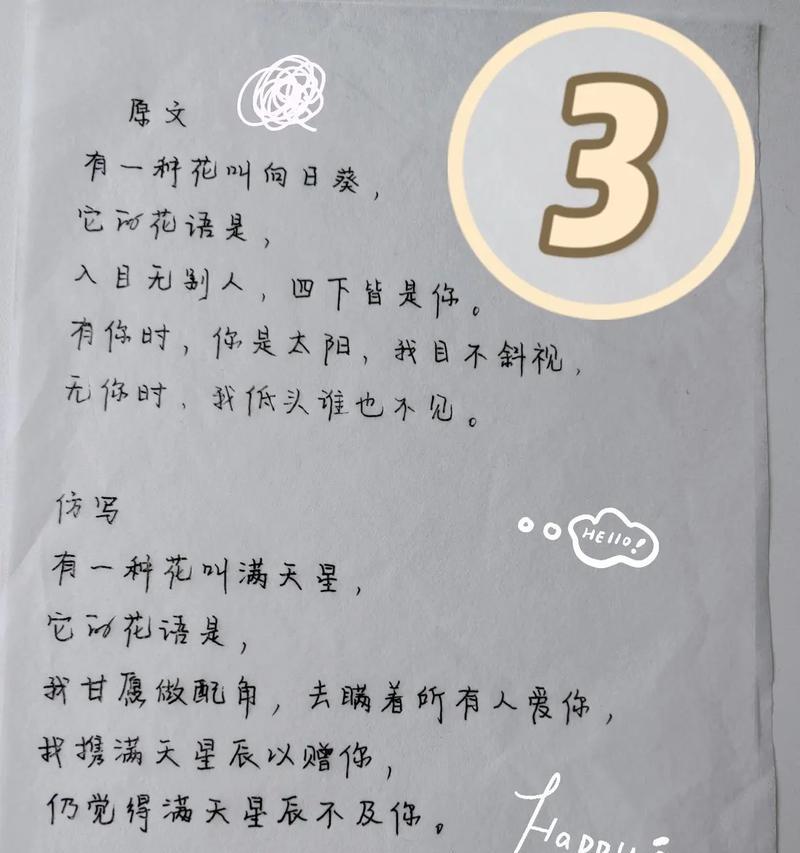 3
原文
有一种花叫向日葵，
它的花语是，
入目无别人，四下皆是你。
有你时，你是太阳，我目不斜视，
无你时，我低头谁也不见。
仿写
HELLO!
有一种花叫满天星，
它的花语是，
我甘愿做配角，去瞒着所有人爱你，
我携满天星辰以赠你，
仍觉得满天星辰不及你。